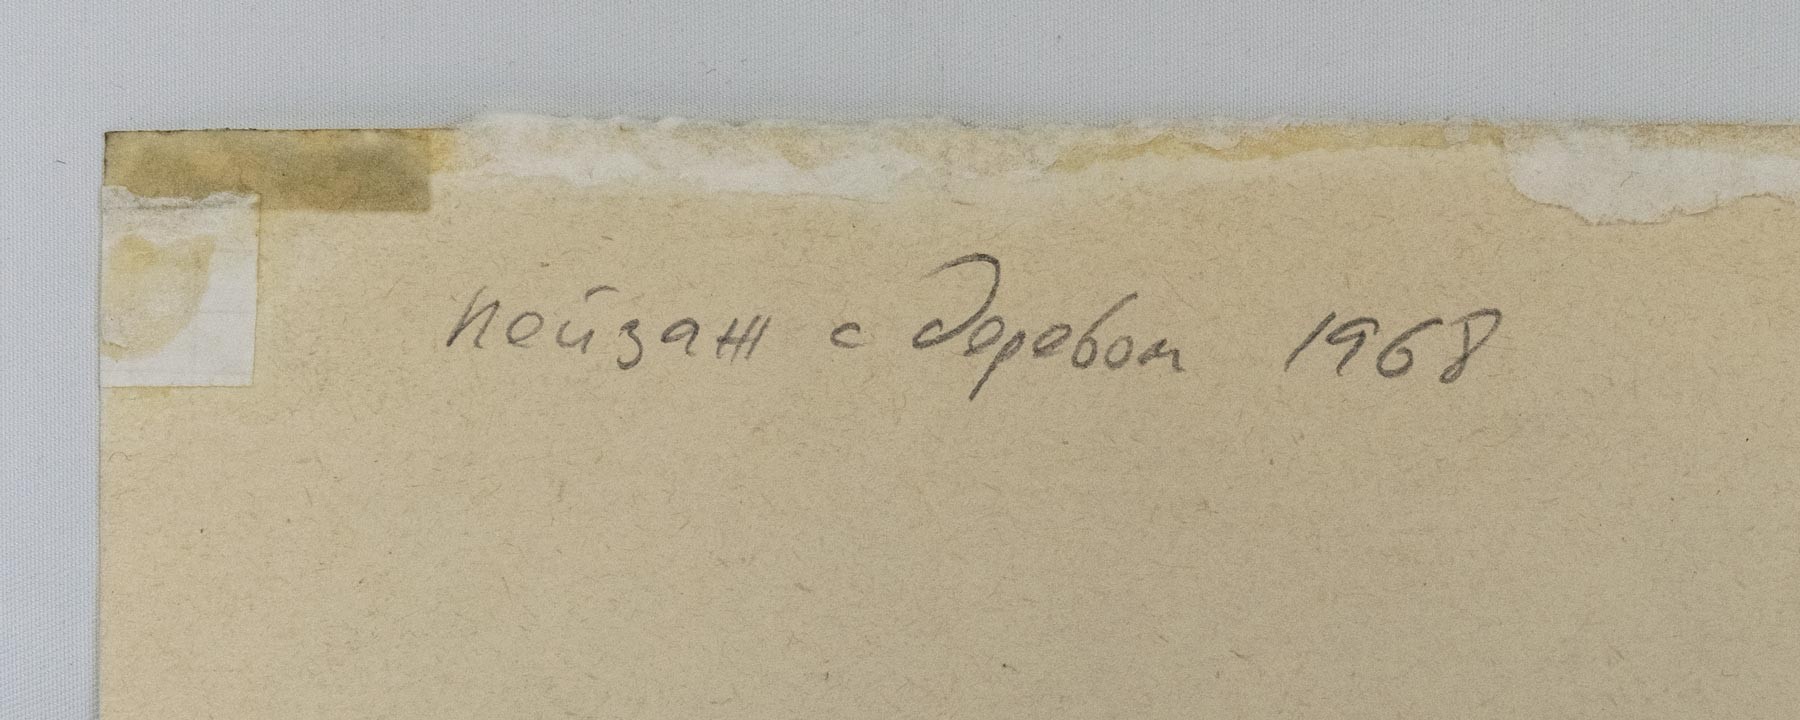 пейзаж с деревом 1968